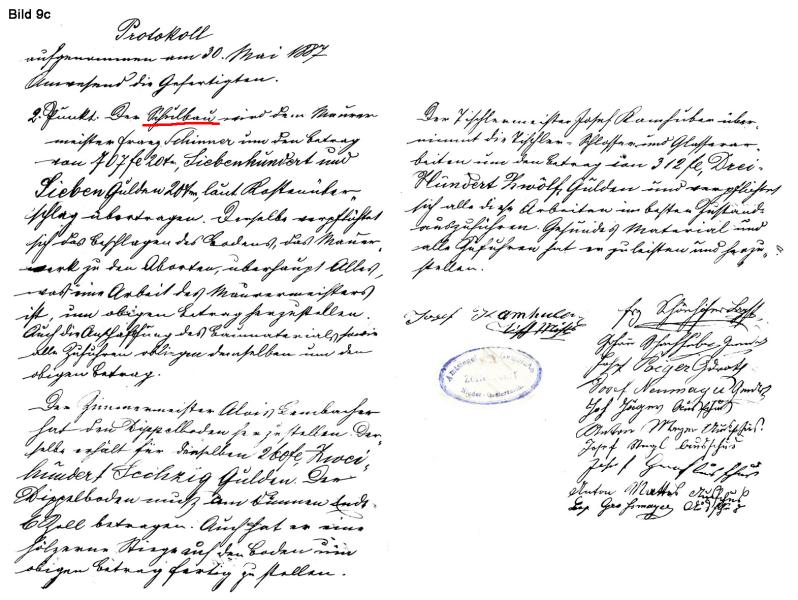 Bild 9c
Protokoll
aufgenommen am 30. Mai 1887
Anwesend die Gefertigten.
2. Punkt. Der Schulbau wird dem Maurer
meister Franz Schinner um den Betrag
von 707 fl 20 kr, Siebenhundert und
Sieben Gulden 20 kr, laut Kostenüber-
schlag übertragen. Derselbe verpflichtet
sich das Beschlagen des Bodens, das Mauer-
werk zu den Aborten, überhaupt Alles,
was eine Arbeit des Maurermeisters
ist, um obigen Betrag herzustellen.
Auch die Anschaffung des Baumaterials, sowie
alle Zufuhren obliegen demselben um den
obigen Betrag.
Der Zimmermeister Alois Lembacher
hat den Dippelboden herzustellen. Der-
selbe erhält für denselben 260 fl, Zwei-
hundert Sechzig Gulden. Der
Dippelboden muß am dünnen Ende
6 Zoll betragen. Auch hat er eine
hölzerne Stiege auf den Boden um
obigen Betrag fertig zu stellen.
Der Tischlermeister Josef Kamhuber über-
nimmt die Tischler- Schlosser und Glaserar-
beiten um den Betrag von 312 fl, Drei-
Hundert Zwölf Gulden und verpflichtet
sich alle diese Arbeiten im besten Zustand
auszuführen. Gesundes Material und
alle Zufuhren hat er zu leisten und herzu-
stellen.
Josef Kamhuber
Tischlermstr
Frz Schönhofer
Josef Neumayer
Anton Mayer Ausschus.
Josef
Anton Mattes Ausschuß